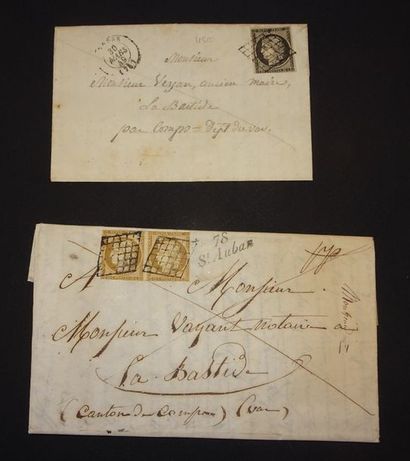 20
MARS
Monsieur
Monsieur Veyan, ancien maire,
La Bastide
par Comps = Dépt du var
78
St Auban
A Monsieur
Monsieur Vayant Notaire a
La Bastide
(Canton de Comps) (var)